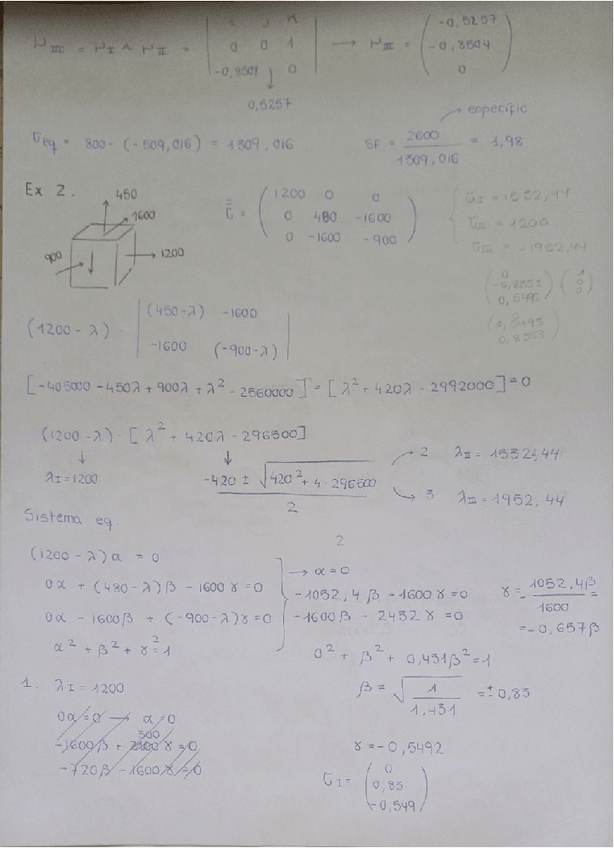 r_III = r_I ∧ r_II = | 0 0 1 | -0,8504 0 | → r_III = ( -0,5257 -0,8504 0 )
0,5257
→ específic
σeq = 800 - (-509,016) = 1309,016 SF = 2600 / 1309,016 = 1,98
Ex 2.
450
1600
900
1200
σ = ( 1200 0 0 / 0 480 -1600 / 0 -1600 -900 )
σI = 1532,44
σII = 1200
σIII = -1952,44
(1200-λ) · | (450-λ) -1600 / -1600 (-900-λ) |
[-405000 - 450λ + 900λ + λ² - 2560000] = [λ² + 420λ - 2992000] = 0
(1200-λ) · [λ² + 420λ - 296500]
↓ ↓
λI = 1200 -420 ± √(420² + 4·296500) / 2
2 λII = 1532,44
3 λIII = 1952,44
Sistema eq.
2
(1200-λ)α = 0
0α + (480-λ)β - 1600γ = 0
0α - 1600β + (-900-λ)γ = 0
α² + β² + γ² = 1
→ α = 0
-1052,4β - 1600γ = 0
-1600β - 2432γ = 0
γ = - 1052,4β / 1600 =
= -0,657β
0² + β² + 0,431β² = 1
β = √(1 / 1,431) = ±0,83
1. λI = 1200
0α = 0 → α = 0
300
-1600β + γ = 0
-720β - 1600γ = 0
γ = -0,5492
σI = ( 0 0,83 -0,549 )